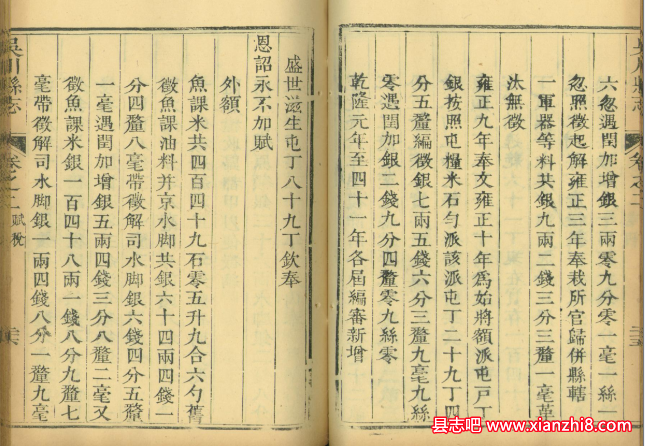 六忽遇閏加增銀三兩零九分零一毫一絲一
忽照徵起解雍正三年奉裁所官歸併縣轄
一軍器等料共銀九兩二錢三分三釐一毫革
汰無徵
雍正九年奉文雍正十年爲始將額派屯戸丁
銀按照屯糧米石勻派該派屯丁二十九丁四
分五釐編徵銀七兩五錢六分三釐九毫九絲
零遇閏加銀二錢九分四釐零九絲零
乾隆元年至四十一年各屆編審新增
盛世滋生屯丁八十九丁欽奉
恩詔永不加賦
外額
魚課米共四百四十九石零五升九合六勺舊
徵魚課油料并京水脚共銀六十四兩四錢一
分四釐八毫帶徵解司水脚銀六錢四分五釐
一毫遇閏加增銀五兩四錢三分八釐二毫又
徵魚課米銀一百四十八兩一錢八分九釐七
毫帶徵解司水脚銀一兩四錢八分一釐九毫
吳川縣志
卷之二
賦稅
县志吧-www.xianzhi8.com